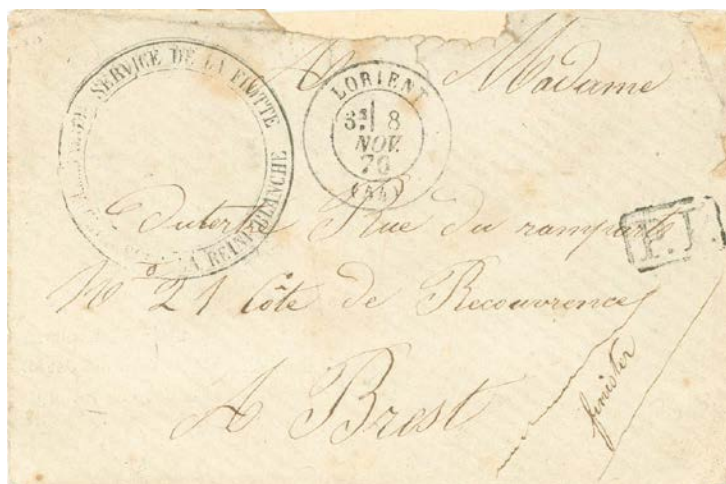 SERVICE DE LA FLOTTE
LA REINE BLANCHE
LORIENT
8
NOV.
70
A Madame
Duterte Rue du ramparts
P.P.
N° 21 Côte de Recouvrence
finister
A Brest